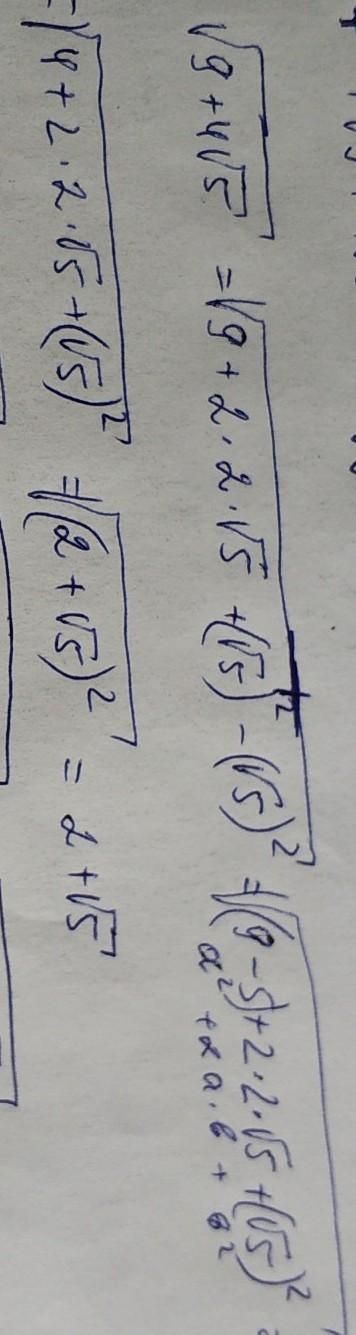 √(9+4√5) = √(9+2·2·√5+(√5)²-(√5)²) = √((9-5)+2·2·√5+(√5)²) =
a² + 2a·b + b²
= √(4+2·2·√5+(√5)²) = √((2+√5)²) = 2+√5